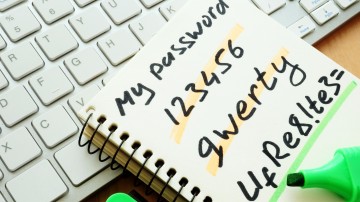 My password
123456
qwerty
U&Re8!te3=